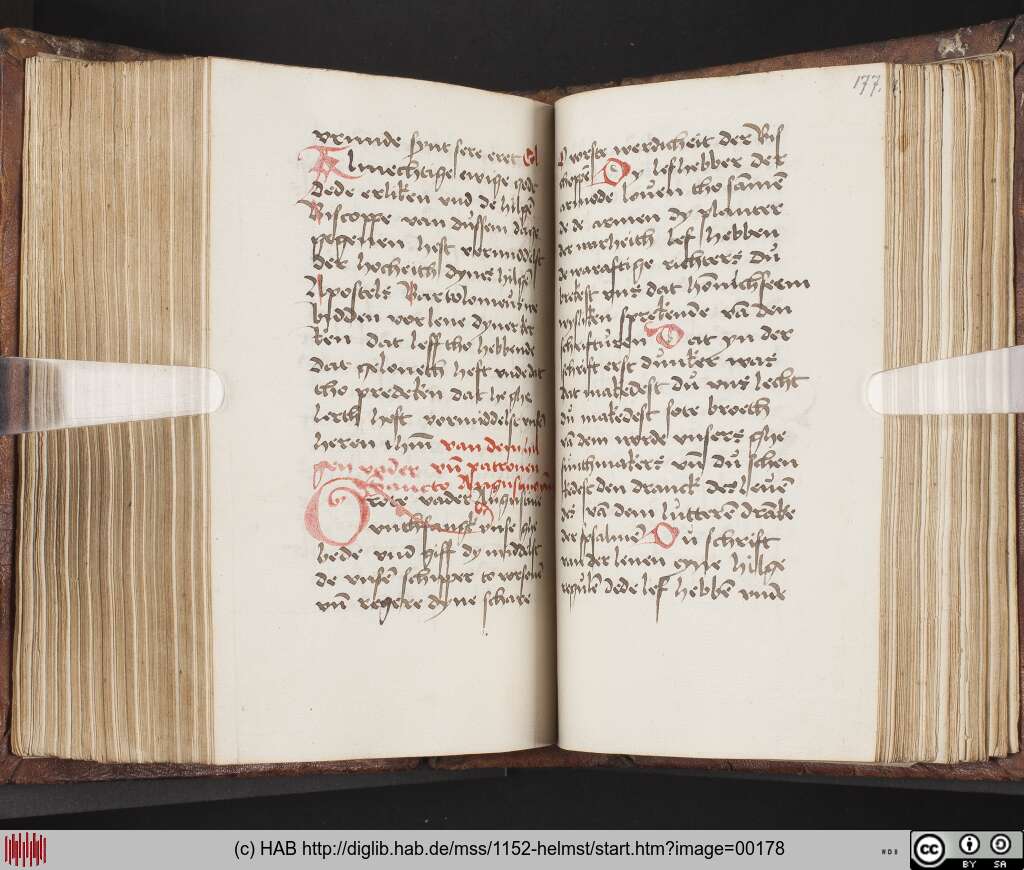 vrunde synt sere eret Col
Almechtige ewige gode
dede erliken vnd de hilgē
Biscoppe van dussem daghe
gegeuen heft vormiddelst
der hocheith dynes hilgē
Apostels Bartolomeus
bidden vorlene dyner ker
ken dat leff tho hebbende
dat geloueth heft vnde dat
tho predeken dat he ghe
lerth heft vormiddelst
heren ihm̄ van dem hil
gen vader vn̄ patronen
Sancto Augustino
Grote vader Augustine
vnthfangk vnse ghe
bede vnd giff dy middelst
de vnsē schipper to vorsonē
vn̄ regere dyne schare
177.
vorste werdicheit der Bis
choppe Dy lefhebber der
armode louen tho samē
de de armen dy planter
der warheith lef hebben
de waraftige richters du
brekest vns dat honnichseem
wysliken sprekende vā den
schrifturen Dat yn der
schrift erst dunker was
dat makedest du vns lecht
du makedest sote broeth
vā dem worde vnsers ghe
suntmakers vn̄ du schen
kedest den dranck des leuē
des vā dem lutteren dranke
der psalmē Du schrift
van der leuen gye hilge
regulē dede lef hebbē vnde
(c) HAB http://diglib.hab.de/mss/1152-helmst/start.htm?image=00178
WDB
cc
BY SA